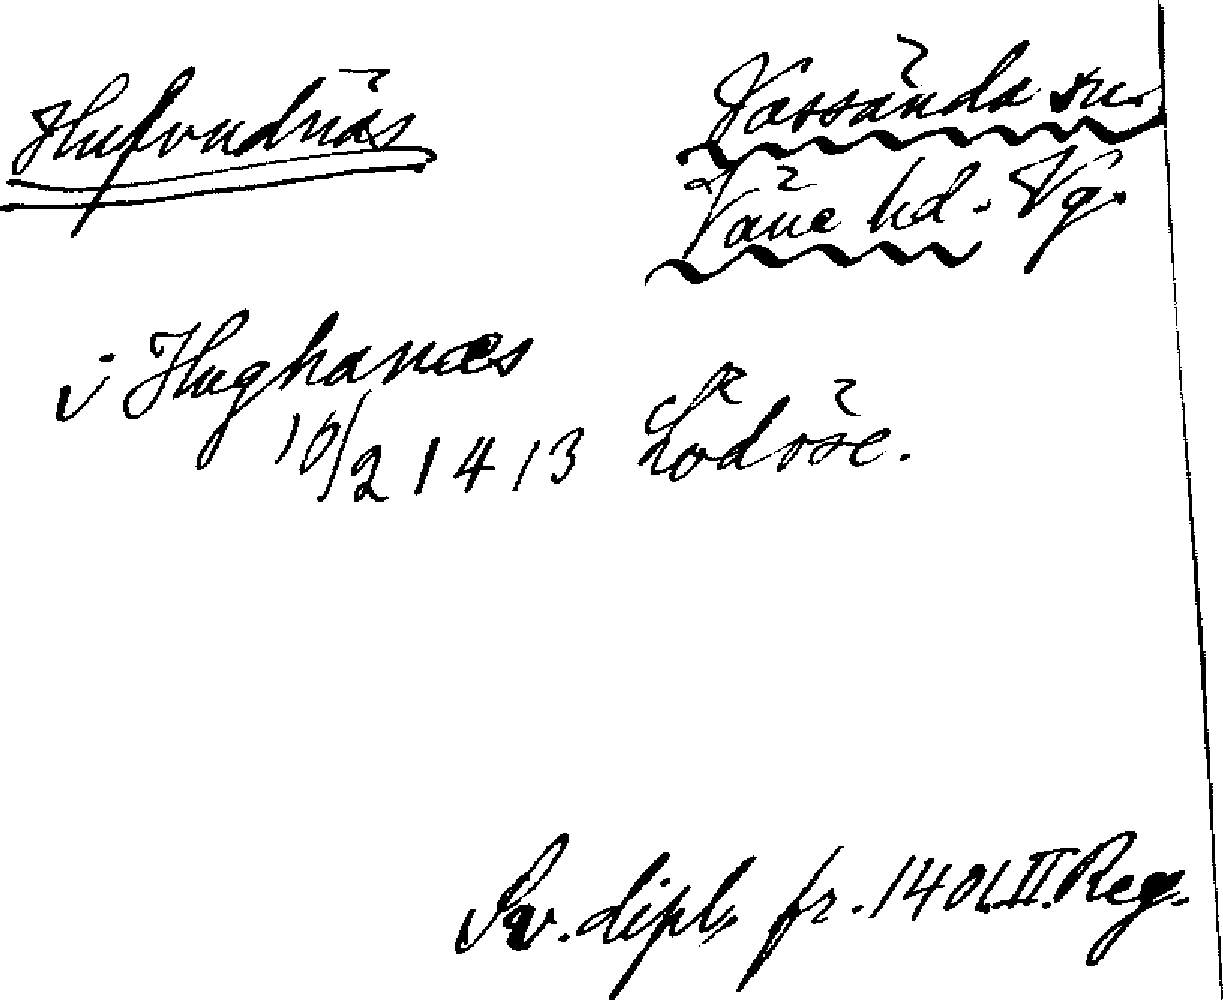 Hufvudnäs
Vassända sn.
Väne hd. Vg.
i Hughanæs
10/2 1413 Lödöse.
Sv. dipl. fr. 1401. II. Reg.